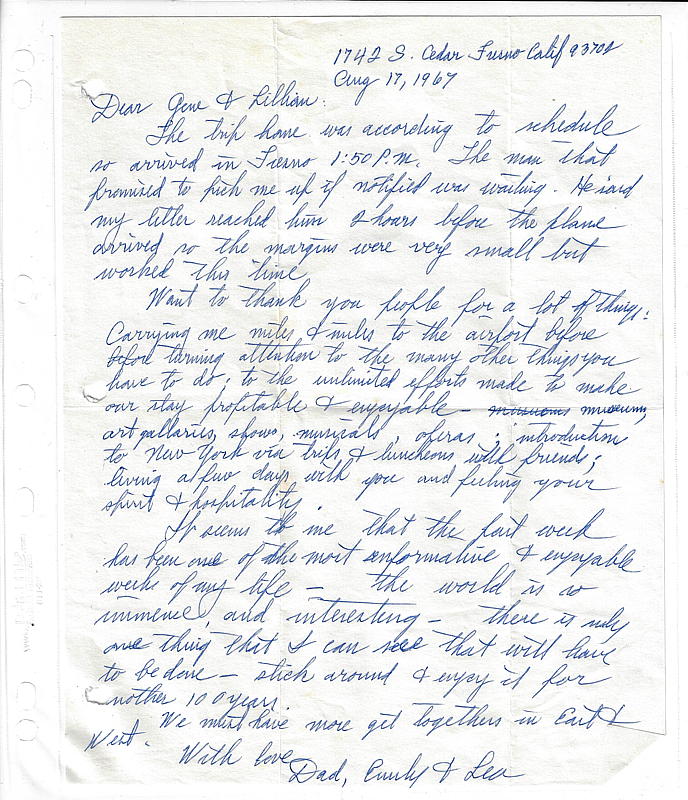 1742 S. Cedar Fresno Calif 93702
Aug 17, 1967
Dear Gene & Lillian:
The trip home was according to schedule
so arrived in Fresno 1:50 P.M. The man that
promised to pick me up if notified was waiting. He said
my letter reached him 2 hours before the plane
arrived so the margins were very small but
worked this time
Want to thank you people for a lot of things:
Carrying me miles & miles to the airport before
before turning attention to the many other things you
have to do; to the unlimited efforts made to make
our stay profitable & enjoyable – museums,
art gallaries, shows, musicals, operas; introduction
to New York via trips & luncheons with friends;
living a few days with you and feeling your
spirit & hospitality.
It seems to me that the past week
has been one of the most informative & enjoyable
weeks of my life – the world is so
immence, and interesting – there is only
one thing that I can see that will have
to be done – stick around & enjoy it for
another 100 years.
We must have more get togethers in East &
West.
With love
Dad, Emily & Leo